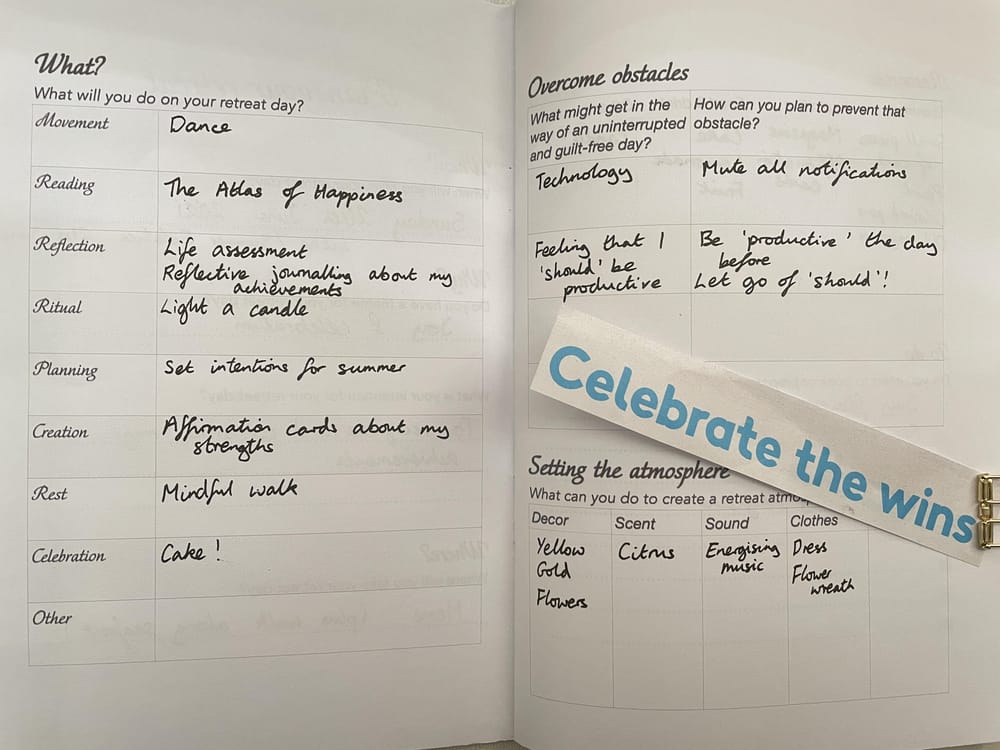 What?
What will you do on your retreat day?
Movement Dance
Reading The Atlas of Happiness
Reflection Life assessment
Reflective journalling about my
achievements
Ritual Light a candle
Planning Set intentions for summer
Creation Affirmation cards about my
strengths
Rest Mindful walk
Celebration Cake!
Other
Overcome obstacles
What might get in the
way of an uninterrupted
and guilt-free day?
How can you plan to prevent that
obstacle?
Technology Mute all notifications
Feeling that I
'should' be
productive
Be 'productive' the day
before
Let go of 'should'!
Celebrate the wins
Setting the atmosphere
What can you do to create a retreat
Decor Scent Sound Clothes
Yellow
Gold
Flowers
Citrus
Energising
music
Dress
Flower
wreath